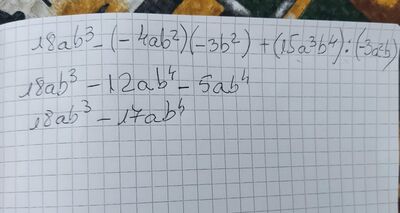 18ab³ - (-4ab²)(-3b²) + (15a³b⁴) : (-3a²b)
18ab³ - 12ab⁴ - 5ab⁴
18ab³ - 17ab⁴